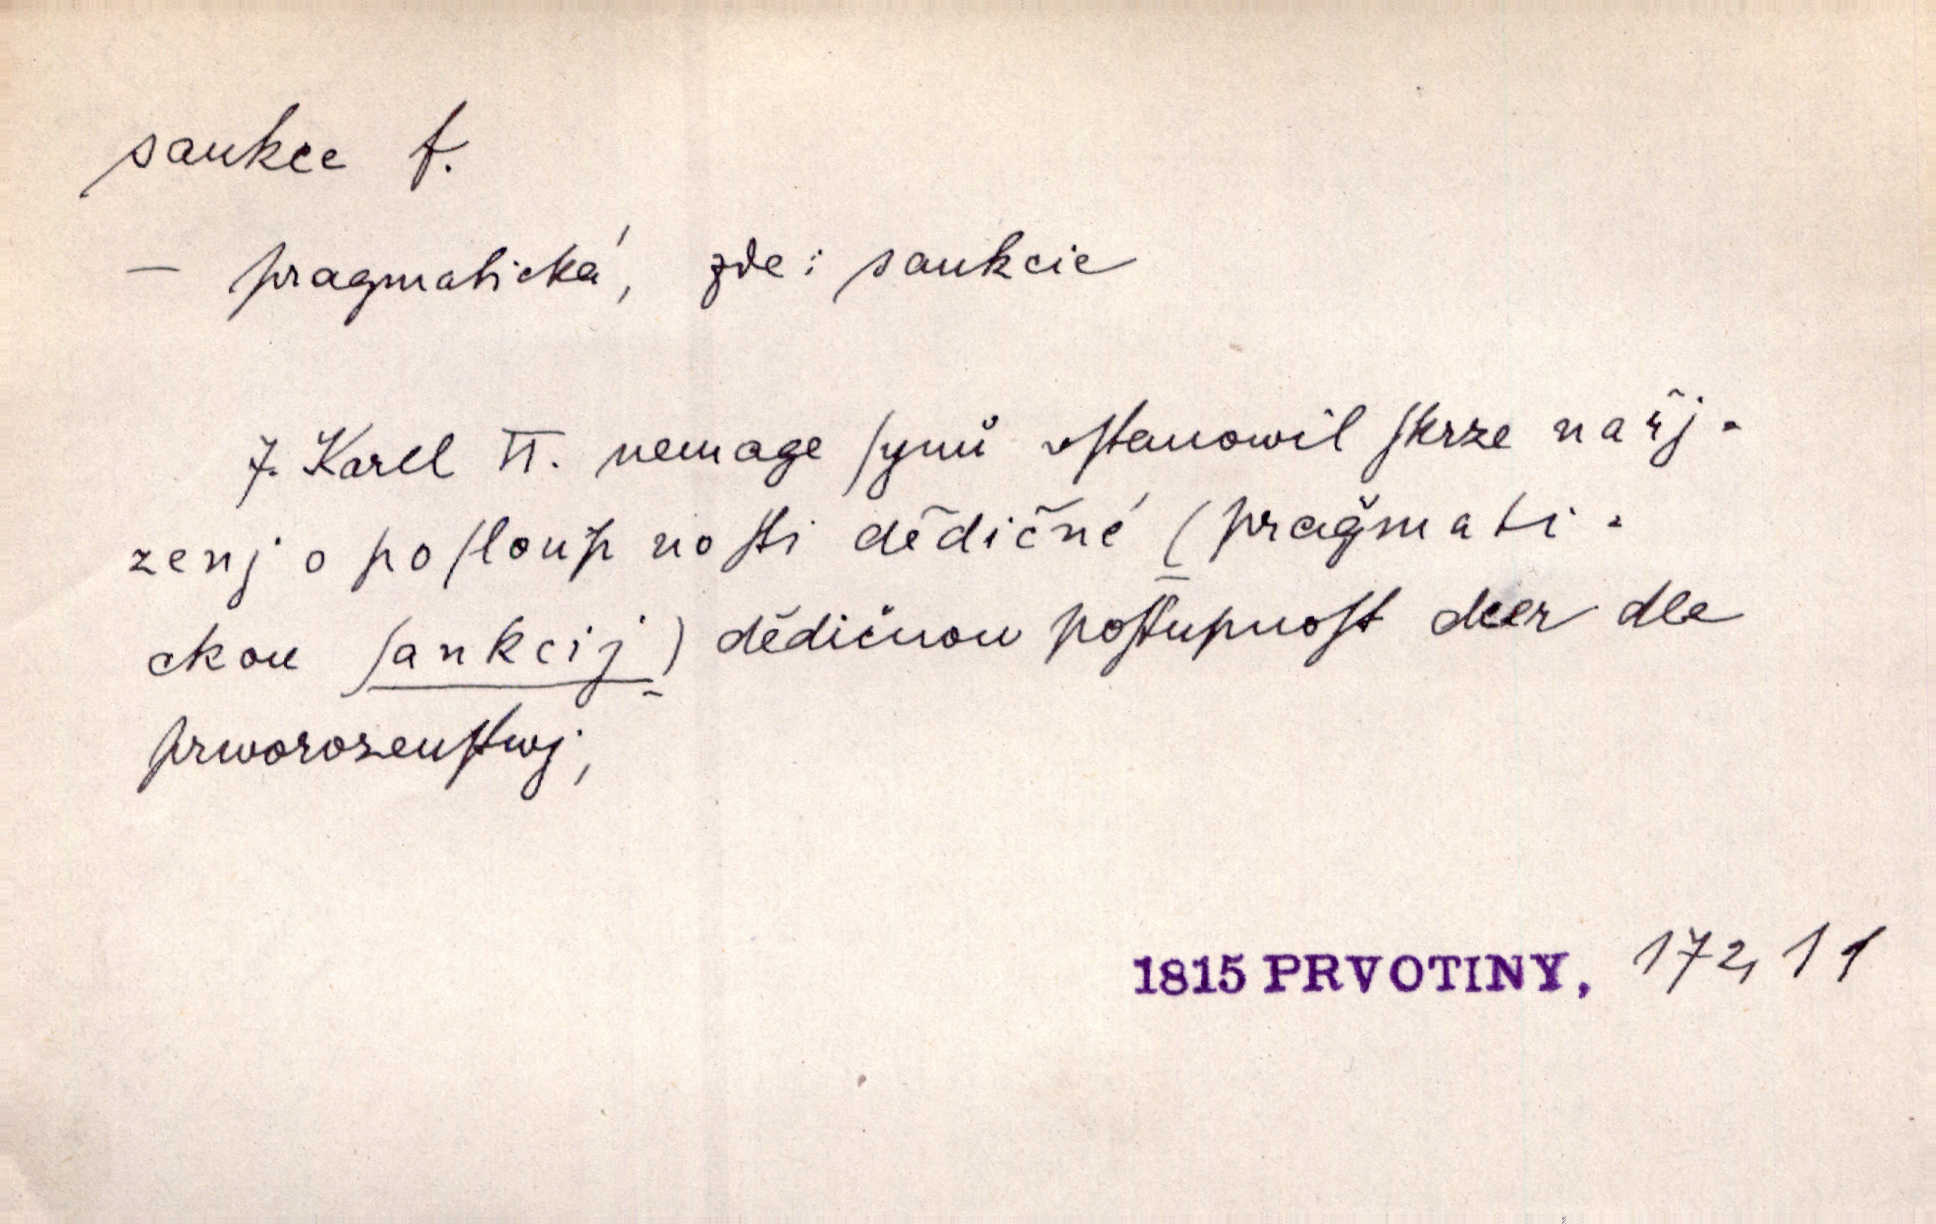 sankce f.
— pragmatická, zde: sankcie
7. Karel VI. nemage ſynů vſtanowil ſkrze nařj-
zenj o poſloupnoſti dědičné (pragmati-
ckou ſankcij) dědičnou poſtupnoſt dcer dle
prworozenſtwj;
1815 PRVOTINY, 172, 11